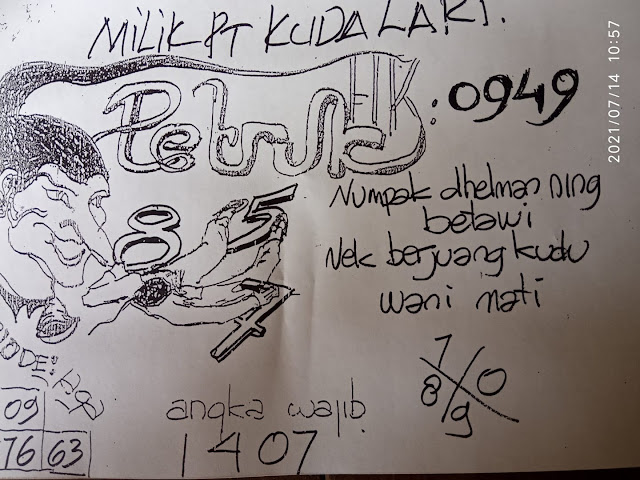 MILIK PT KUDA LARI.
Petruk : 0949
Numpak dhelman ning
betawi
Nek berjuang kudu
wani mati
8 5
7
7
8 0
9
09
76 63
angka wajib
1407
2021/07/14 10:57